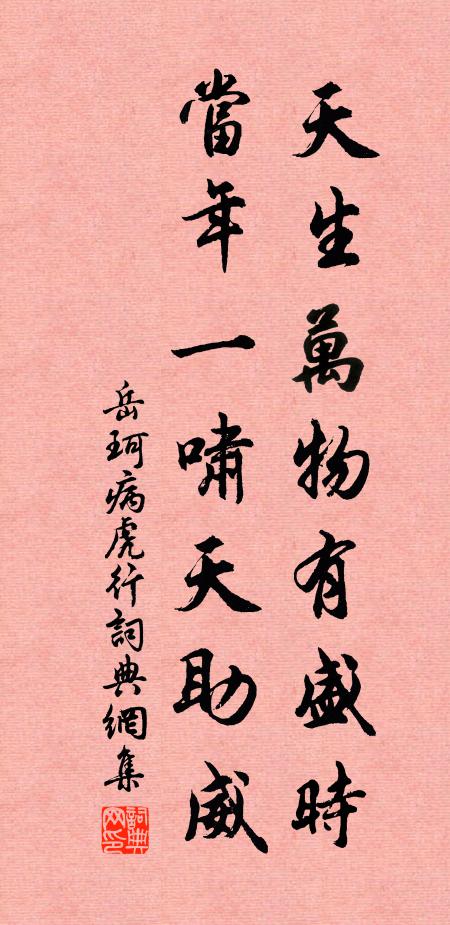 天生萬物有盛時
當年一嘯天助威
岳珂病虎行詞典網集
詞典网印